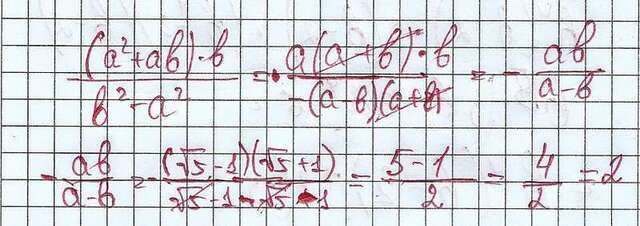 (a²+ab)·b / b²-a² = a(a+b)·b / -(a-b)(a+b) = - ab / a-b
- ab / a-b = - (√5-1)(√5+1) / √5-1-√5-1 = 5-1 / 2 = 4 / 2 = 2